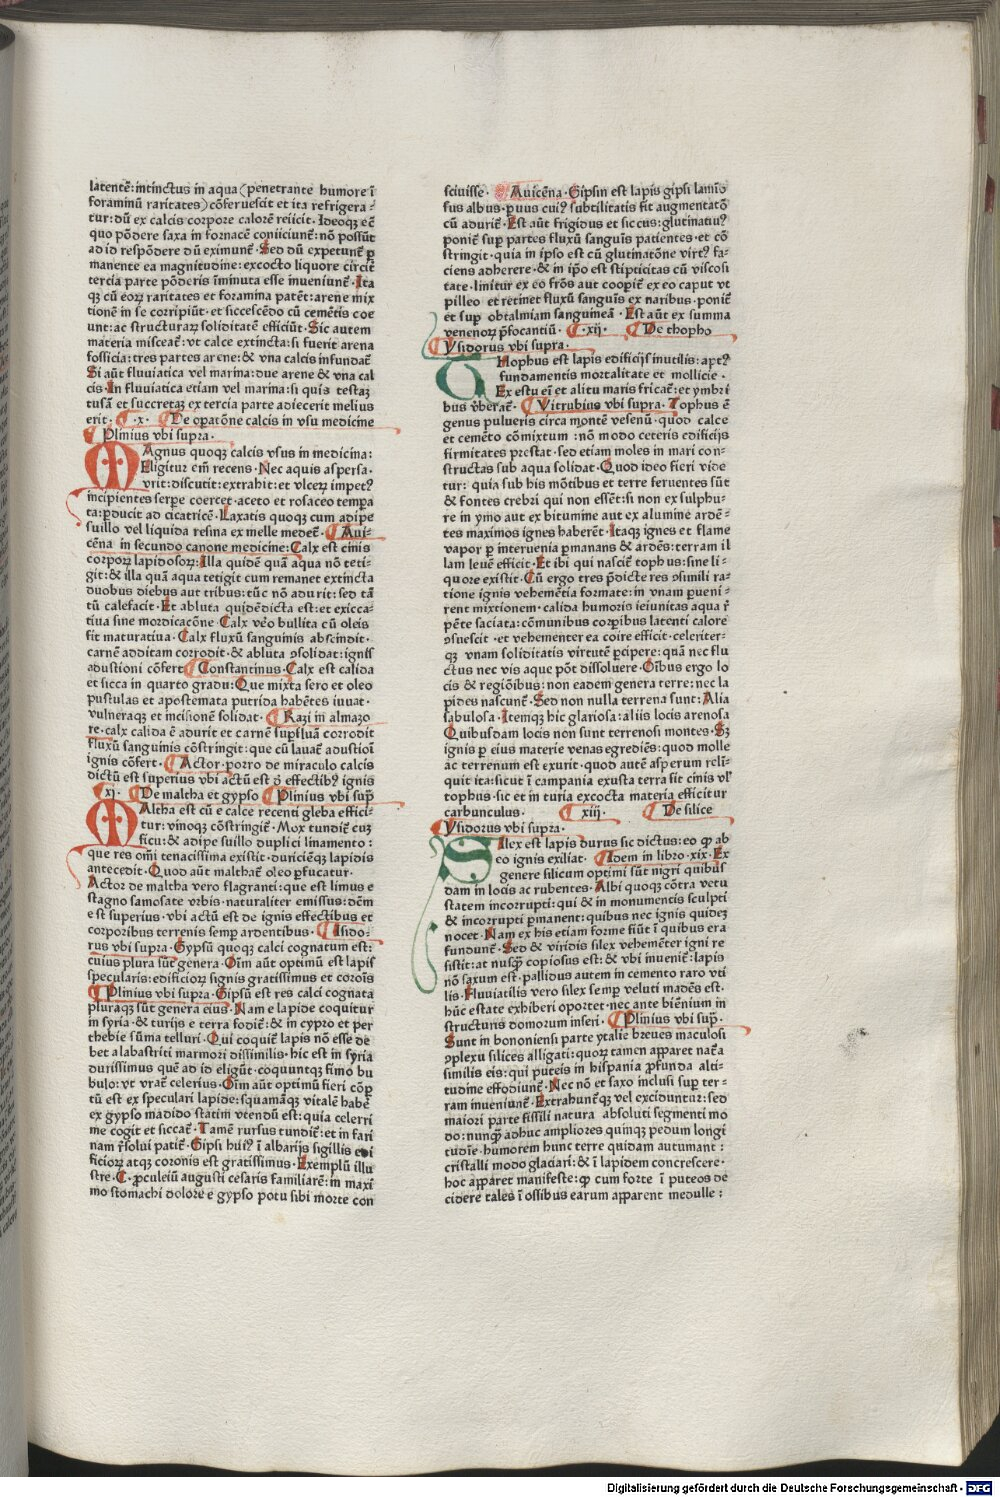 latentē: intinctus in aqua (penetrante humore ī
foraminū raritates) cōferuescit et ita refrigera
tur: dū ex calcis corpore calorē reiicit. Ideoqꝫ eē
quo pōdere saxa in fornacē coniiciunt̄: nō possūt
ad id respōdere dū eximunt̄. Sed dū expetunt̄ ꝑ
manente ea magnitudine: excocto liquore circit̄
tercia parte pōderis īminuta esse inueniunt̄. Ita
qꝫ cū eoꝝ raritates et foramina patēt: arene mix
tionē in se corripiūt. et siccescēdo cū cemētis coe
unt: ac structuraꝝ soliditatē efficiūt. Sic autem
materia misceat̄: vt calce extincta: si fuerit arena
fossicia: tres partes arene: & vna calcis infundat̄
Si aūt fluuiatica vel marina: due arene & vna cal
cis. In fluuiatica etiam vel marina: si quis testaꝫ
tusā et succretaꝫ ex tercia parte adiecerit melius
erit. ¶ .x. ¶ De oꝑatōne calcis in vsu medicine
¶ Plinius vbi supra.
MAgnus quoqꝫ calcis vsus in medicina:
Eligitur em̄ recens. Nec aquis aspersa.
vrit: discutit: extrahit: et vlceꝝ impetꝰ
incipientes serpe coercet. aceto et rosaceo tempa
ta: ꝑducit ad cicatricē. Laxatis quoqꝫ cum adipe
suillo vel liquida resina ex melle medet̄. ¶ Aui-
cēna in secundo canone medicine: Calx est cinis
corpoꝝ lapidosoꝝ: Illa quidē quā aqua nō teti-
git: & illa quā aqua tetigit cum remanet extincta
duobus diebus aut tribus: tūc nō adurit: sed tā
tū calefacit. Et abluta quidē dicta est: et exicca-
tiua sine mordicacōne. Calx veō bullita cū oleis
fit maturatiua. Calx fluxū sanguinis abscindit.
carnē additam corrodit. & abluta ꝯsolidat: ignis
adustioni cōfert. ¶ Constantinus. Calx est calida
et sicca in quarto gradu: Que mixta sero et oleo
pustulas et apostemata putrida habētes iuuat.
vulneraqꝫ et incisionē solidat. ¶ Razi in almazo
re. calx calida ē adurit et carnē suꝑfluā corrodit
fluxū sanguinis cōstringit: que cū lauat̄ adustioī
ignis cōfert. ¶ Actor. porro de miraculo calcis
dictū est superius vbi actū est ꝺ effectibꝰ ignis
xj. ¶ De maltha et gypso ¶ Plinius vbi supꝰ
MAltha est cū e calce recenti gleba effici-
tur: vinoqꝫ cōstringit̄. Mox tundit̄ cuꝫ
ficu: & adipe suillo duplici linamento:
que res om̄i tenacissima existit. duriciēqꝫ lapidis
antecedit. Quod aūt malthat̄ oleo ꝑfucatur.
Actor de maltha vero flagranti: que est limus e
stagno samosate vrbis. naturaliter emissus: dēm
est superius. vbi actū est de ignis effectibus et
corporibus terrenis semꝑ ardentibus. ¶ Isido-
rus vbi supra. Gypsū quoqꝫ calci cognatum est:
cuius plura sūt genera. Oīm aūt optimū est lapis
specularis: edificioꝝ signis gratissimus et coroīs
¶ Plinius vbi supra. Gipsū est res calci cognata
pluraqꝫ sūt genera eius. Nam e lapide coquitur
in syria. & turijs e terra fodit̄: & in cypro et per
thebie sūma telluri. Qui coquit̄ lapis nō esse de
bet alabastriti marmori dissimilis. hic est in syria
durissimus quē ad id eligūt. coquuntqꝫ fimo bu
bulo: vt vrat̄ celerius. Oīm aūt optimū fieri cōꝑ
tū est ex speculari lapide: squamāqꝫ vitalē habēt
ex gypso madido statim vtendū est: quia celerri
me cogit et siccat̄. Tamē rursus tundit̄: et in fari
nam r̄solui patit̄. Gipsi huiꝰ ī albarijs sigillis edi
ficioꝝ atqꝫ coronis est gratissimus. Exemplū illu
stre. C. ꝓculeiū augusti cesaris familiarē: in maxi
mo stomachi dolore e gypso potu sibi morte con
sciuisse. ¶ Auicēna. Gipsin est lapis gipsi lamio
sus albus. ꝑuus cuiꝰ subtilitatis fit augmentatō
cū adurit̄. Est aūt frigidus et siccus: glutinatiuꝰ
ponit̄ suꝑ partes fluxū sanguīs patientes. et cō
stringit. quia in ipso est cū glutinatōne virtꝰ fa-
ciens adherere. & in ip̄o est stipticitas cū viscosi
tate. linitur ex eo frōs aut cooꝑit̄ ex eo caput vt
pilleo et retinet fluxū sanguīs ex naribus. ponit̄
et suꝑ obtalmiam sanguineā. Est aūt ex summa
venenoꝝ p̄focantiū. ¶ .xij. ¶ De thopho
¶ Ysidorus vbi supra.
THophus est lapis edificijs inutilis: aptꝰ
fundamentis mortalitate et mollicie.
Ex estu ei et alitu maris fricat̄: et ymbri
bus v̄berat̄. ¶ Vitrubius vbi supra. Tophus ē
genus pulueris circa montē vesenū. quod calce
et cemēto cōmixtum: nō modo ceteris edificijs
firmitates prestat. sed etiam moles in mari con-
structas sub aqua solidat. Quod ideo fieri vide
tur: quia sub his mōtibus et terre feruentes sūt
& fontes crebri qui non essēt: si non ex sulphu-
re in ymo aut ex bitumine aut ex alumine ardē-
tes maximos ignes haberēt. Itaqꝫ ignes et flame
vapor ꝑ interuenia ꝑmanans & ardēs: terram il
lam leuē efficit. Et ibi qui nascit̄ tophus: sine li-
quore existit. Cū ergo tres p̄dicte res ꝯsimili ra-
tione ignis vehemētia formate: in vnam ꝑueni-
rent mixtionem. calida humoris ieiunitas aqua r̄
pēte saciata: cōmunibus corꝑibus latenti calore
ꝯsuescit. et vehementer ea coire efficit. celeriter-
qꝫ vnam soliditatis virtutē ꝑcipere: quā nec flu
ctus nec vis aque pōt dissoluere. Oībus ergo lo
cis & regiōibus: non eadem genera terre: nec la
pides nascunt̄. Sed non nulla terrena sunt: Alia
sabulosa. Itemqꝫ hic glariosa: aliis locis arenosa
Quibusdam locis non sunt terrenosi montes. Sꝫ
ignis ꝑ eius materie venas egrediēs: quod molle
ac terrenum est exurit. quod autē asperum reli-
quit ita: sicut ī campania exusta terra sit cinis vl̓
tophus. sic et in turia excocta materia efficitur
carbunculus. ¶ xiij. ¶ De silice
¶ Ysidorus vbi supra.
SIlex est lapis durus sic dictus: eo ꝙ ab
eo ignis exiliat. ¶ Idem in libro. xix. Ex
genere silicum optimi sūt nigri quibus
dam in locis ac rubentes. Albi quoqꝫ cōtra vetu
statem incorrupti: qui & in monumentis sculpti
& incorrupti ꝑmanent: quibus nec ignis quideꝫ
nocet. Nam ex his etiam forme fiūt ī quibus era
fundunt̄. Sed & viridis silex vehemēter igni re
sistit: at nusqꝫ̄ copiosus est: & vbi inuenit̄: lapis
nō saxum est. pallidus autem in cemento raro vti
lis. Fluuiatilis vero silex semꝑ veluti madēs est.
hūc estate exhiberi oportet. nec ante biēnium in
structuris domorum inseri. ¶ Plinius vbi suꝑ.
Sunt in bononiensi parte ytalie breues maculosi
ꝯplexu silices alligati: quoꝝ tamen apparet nat̄a
similis eis: qui puteis in hispania ꝓfunda alti-
tudine effodiunt̄. Nec nō et saxo inclusi suꝑ ter-
ram inueniunt̄. Extrahunt̄qꝫ vel exciduntur: sed
maiori parte fissili natura absoluti segmenti mo
do: nunqꝫ̄ adhuc ampliores quinqꝫ pedum longi
tudīe. humorem hunc terre quidam autumant:
cristalli modo glaciari: & ī lapidem concrescere.
hoc apparet manifeste: ꝙ cum forte ī puteos de
cidere tales ī ossibus earum apparent medulle:
Digitalisierung gefördert durch die Deutsche Forschungsgemeinschaft - DFG